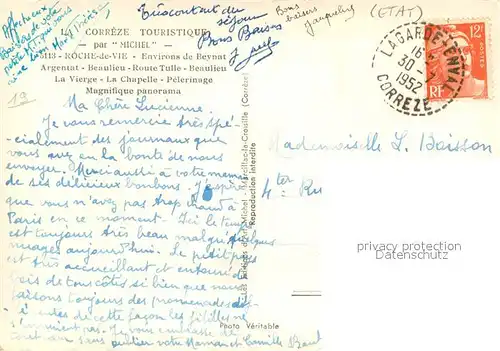 Affectueux
Baisers de votre
petite
Marie Thérèse
Très contant du séjour
Bons Baisers
Bons
baisers
Jacqueline
(ETAT)
LA CORRÈZE TOURISTIQUE
par "MICHEL"
5113 - ROCHE-de-VIC - Environs de Beynat
Argentat - Beaulieu - Route Tulle - Beaulieu
La Vierge - La Chapelle - Pèlerinage
Magnifique panorama
19
Ma Chère Lucienne.
Je vous remercie très spé-
cialement des journaux que
vous avez eu la bonté de nous
envoyer. Merci aussi à votre maman
de ses délicieux bonbons. J'espère
que vous n'avez pas trop chaud à
Paris en ce moment. Ici le temps
est toujours très beau malgré quelques
nuages aujourd'hui. Le petit pays
est très accueillant et entouré de
bois de tous côtés si bien que nous
faisons toujours des promenades dif-
de cette façon les filles ne
s'ennuient pas. Je vous embrasse
sans oublier votre Maman et Camille
Photo Véritable
Reproduction interdite
Marcillac-la-Croisille (Corrèze)
LAGARDE-ENVAL
16
30
1952
CORRÈZE
12F
POSTES
RF
Mademoiselle L. Baisson
4 ter Ru
privacy protection
Datenschutz